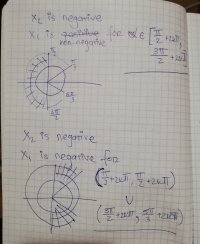 x₂ is negative
x₁ is positive for α ∈ [π/2 + 2kπ,
non-negative
3π/2 + 2kπ]
π/2
π/3
5π/3
3π/2
x₂ is negative
x₁ is negative for
(π/3 + 2kπ, π/2 + 2kπ)
∪
(3π/2 + 2kπ, 5π/3 + 2kπ)